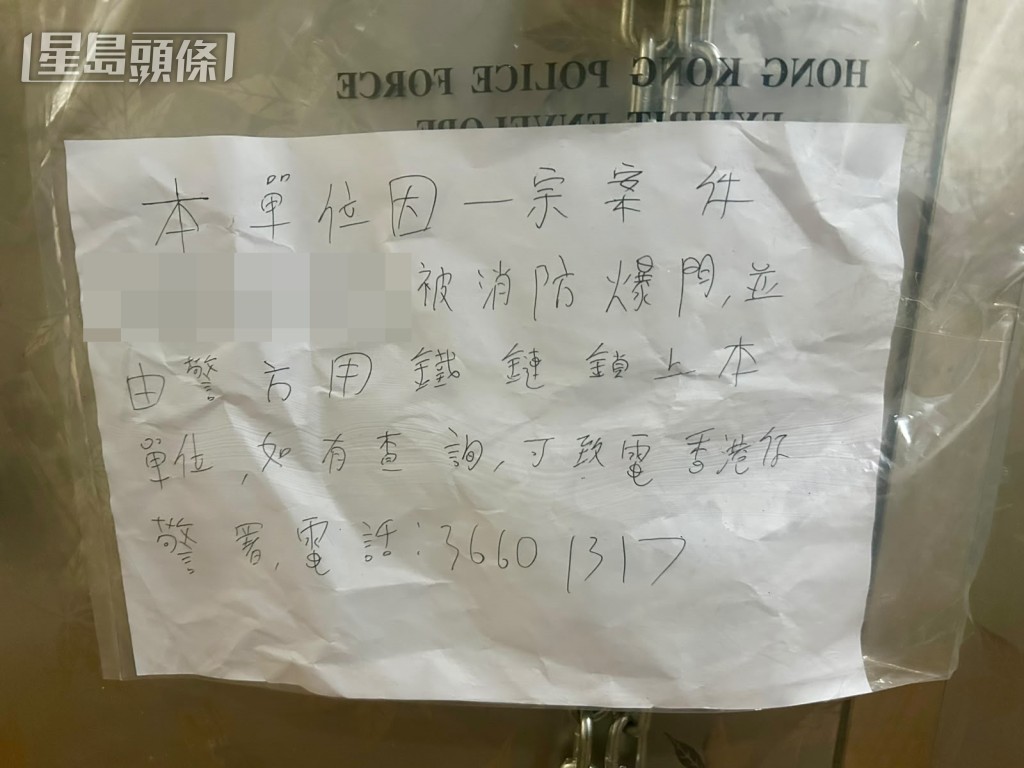 星島頭條
HONG KONG POLICE FORCE
EXHIBIT ENVELOPE
本單位因一宗案件
被消防爆門,並
由警方用鐵鏈鎖上本
單位,如有查詢,可致電香港仔
警署,電話:3660 1317